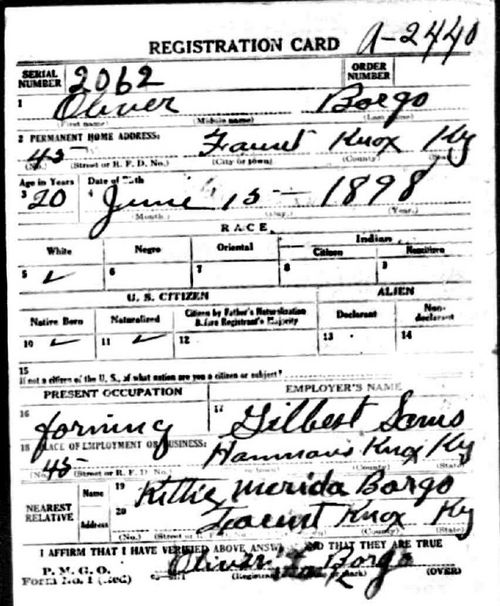 REGISTRATION CARD A-2440
SERIAL NUMBER 2062 ORDER NUMBER
1 Oliver Borgo
(First name) (Middle name) (Last name)
2 PERMANENT HOME ADDRESS:
45 Knox Ky
(No.) (Street or R. F. D. No.) (City or town) (County) (State)
Age in Years Date of Birth
3 20 4 June 15 - 1898
(Month.) (Day.) (Year.)
RACE
White Negro Oriental Indian
Citizen Noncitizen
5 ✓ 6 7 8 9
U. S. CITIZEN ALIEN
Native Born Naturalized Citizen by Father's Naturalization Before Registrant's Majority Declarant Non-declarant
10 ✓ 11 ✓ 12 13 14
15
If not a citizen of the U. S., of what nation are you a citizen or subject?
PRESENT OCCUPATION EMPLOYER'S NAME
16 17 Gilbert
18 PLACE OF EMPLOYMENT OR BUSINESS:
45 Knox Ky
(No.) (Street or R. F. D. No.) (County) (State)
NEAREST RELATIVE Name 19 Kittie Merida Borgo
Address 20 Knox Ky
(No.) (County) (State)
I AFFIRM THAT I HAVE VERIFIED ABOVE ANSWERS AND THAT THEY ARE TRUE
P. M. G. O.
Form No. 1 (Red) Oliver Borgo (OVER)